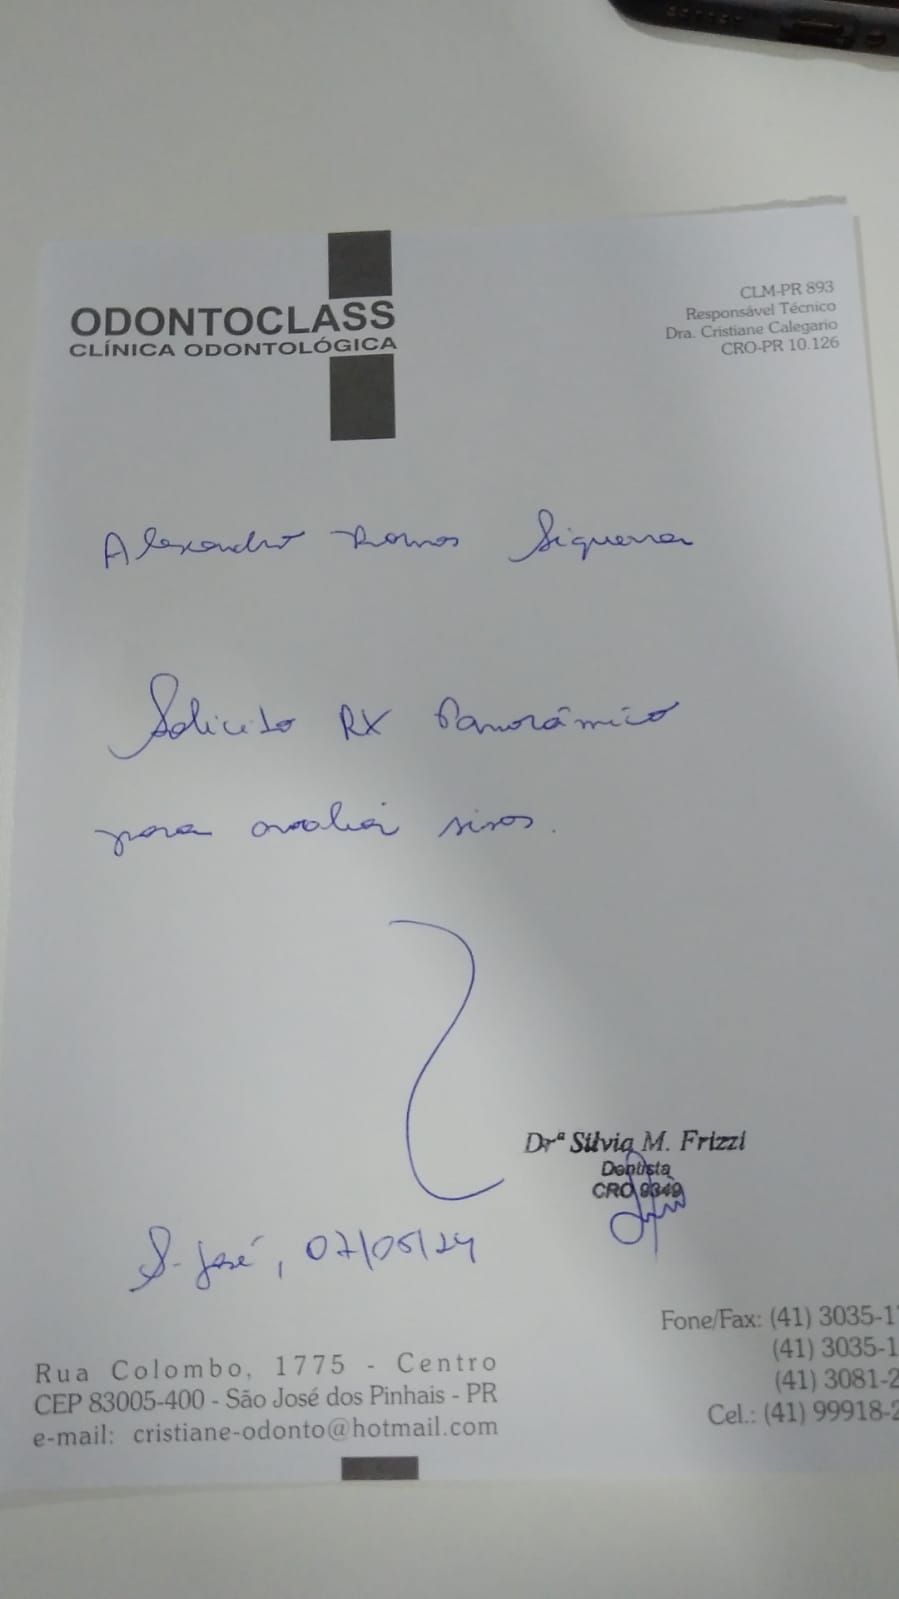 ODONTOCLASS
CLÍNICA ODONTOLÓGICA
CLM-PR 893
Responsável Técnico
Dra. Cristiane Calegario
CRO-PR 10.126
Alexandro Ramos Siqueira
Solicito RX Panorâmico
para avaliar sisos.
Drª Silvia M. Frizzi
Dentista
CRO 9349
S. José, 07/05/24
Rua Colombo, 1775 - Centro
CEP 83005-400 - São José dos Pinhais - PR
e-mail: cristiane-odonto@hotmail.com
Fone/Fax: (41) 3035-1
(41) 3035-1
(41) 3081-2
Cel.: (41) 99918-2